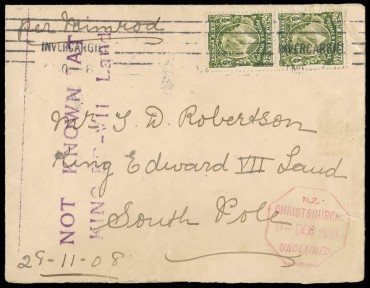 per Nimrod
INVERCARGIL
INVERCARGIL
NOT KNOWN AT
KING ED-VII Land
Mr J. D. Robertson
King Edward VII Land
South Pole
N.Z.
CHRISTCHURCH
DE
UNCLAIMED
29-11-08